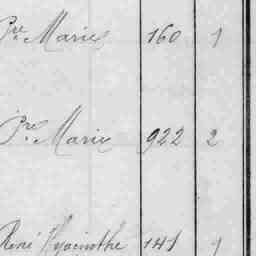 Pre. Marie 160 1
Pre. Marie 922 2
René Hyacinthe 141 1